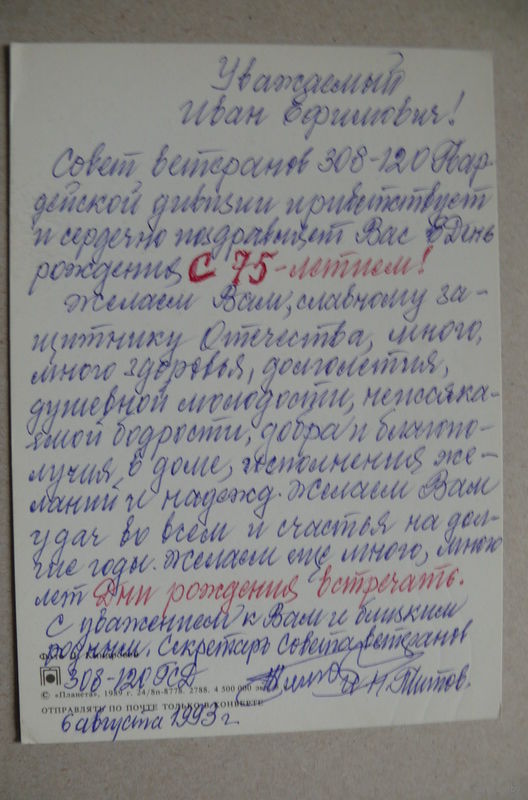 Уважаемый
Иван Ефимович!
Совет ветеранов 308-120 Гвар-
дейской дивизии приветствует
и сердечно поздравляет Вас в День
рождения с 75-летием!
Желаем Вам, славному за-
щитнику Отечества, много,
много здоровья, долголетия,
душевной молодости, неиссяка-
емой бодрости, добра и благопо-
лучия в доме, исполнения же-
ланий и надежд. Желаем Вам
удач во всём и счастья на дол-
гие годы. Желаем ещё много, много
лет Дни рождения встречать.
С уважением к Вам и близким
родным. Секретарь Совета ветеранов
308-120 ГСД И.Н. Титов.
© «Планета», 1989 г. 24/8п-8778. 2788. 4 500 000
ОТПРАВЛЯТЬ ПО ПОЧТЕ ТОЛЬКО В КОНВЕРТЕ
6 августа 1993 г.